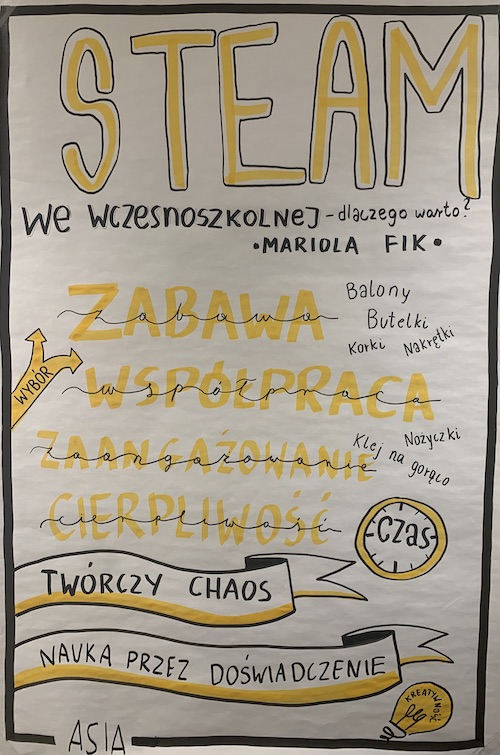 STEAM
WE WCZESNOSZKOLNEJ - dlaczego warto?
•MARIOLA FIK•
ZABAWA
zabawa
Balony
Butelki
Korki
Nakrętki
WYBÓR
WSPÓŁPRACA
współpraca
ZAANGAŻOWANIE
zaangażowanie
Klej na gorąco
Nożyczki
CIERPLIWOŚĆ
cierpliwość
CZAS
TWÓRCZY CHAOS
NAUKA PRZEZ DOŚWIADCZENIE
KREATYWNOŚĆ
ASIA